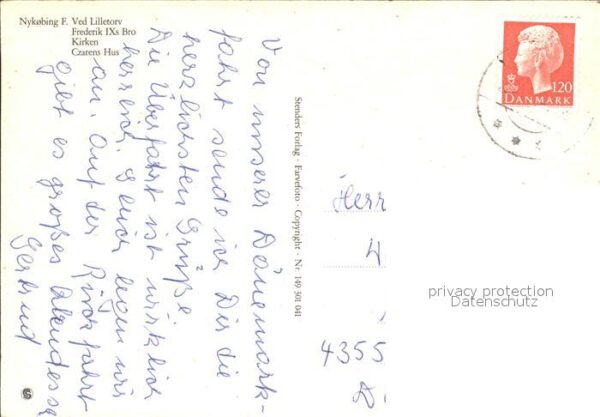 Nykøbing F. Ved Lilletorv
Frederik IXs Bro
Kirken
Czarens Hus
Von unserer Dänemark-
fahrt sende ich Dir die
herzlichsten Grüße
Die Überfahrt ist wirklich
herrlich. Gleich legen wir
an. Auf der Rückfahrt
gibt es großes Abendessen
Gertrud
Stenders Forlag - Farvefoto - Copyright - Nr. 149 301 041
120
DANMARK
Herr
4355
privacy protection
Datenschutz